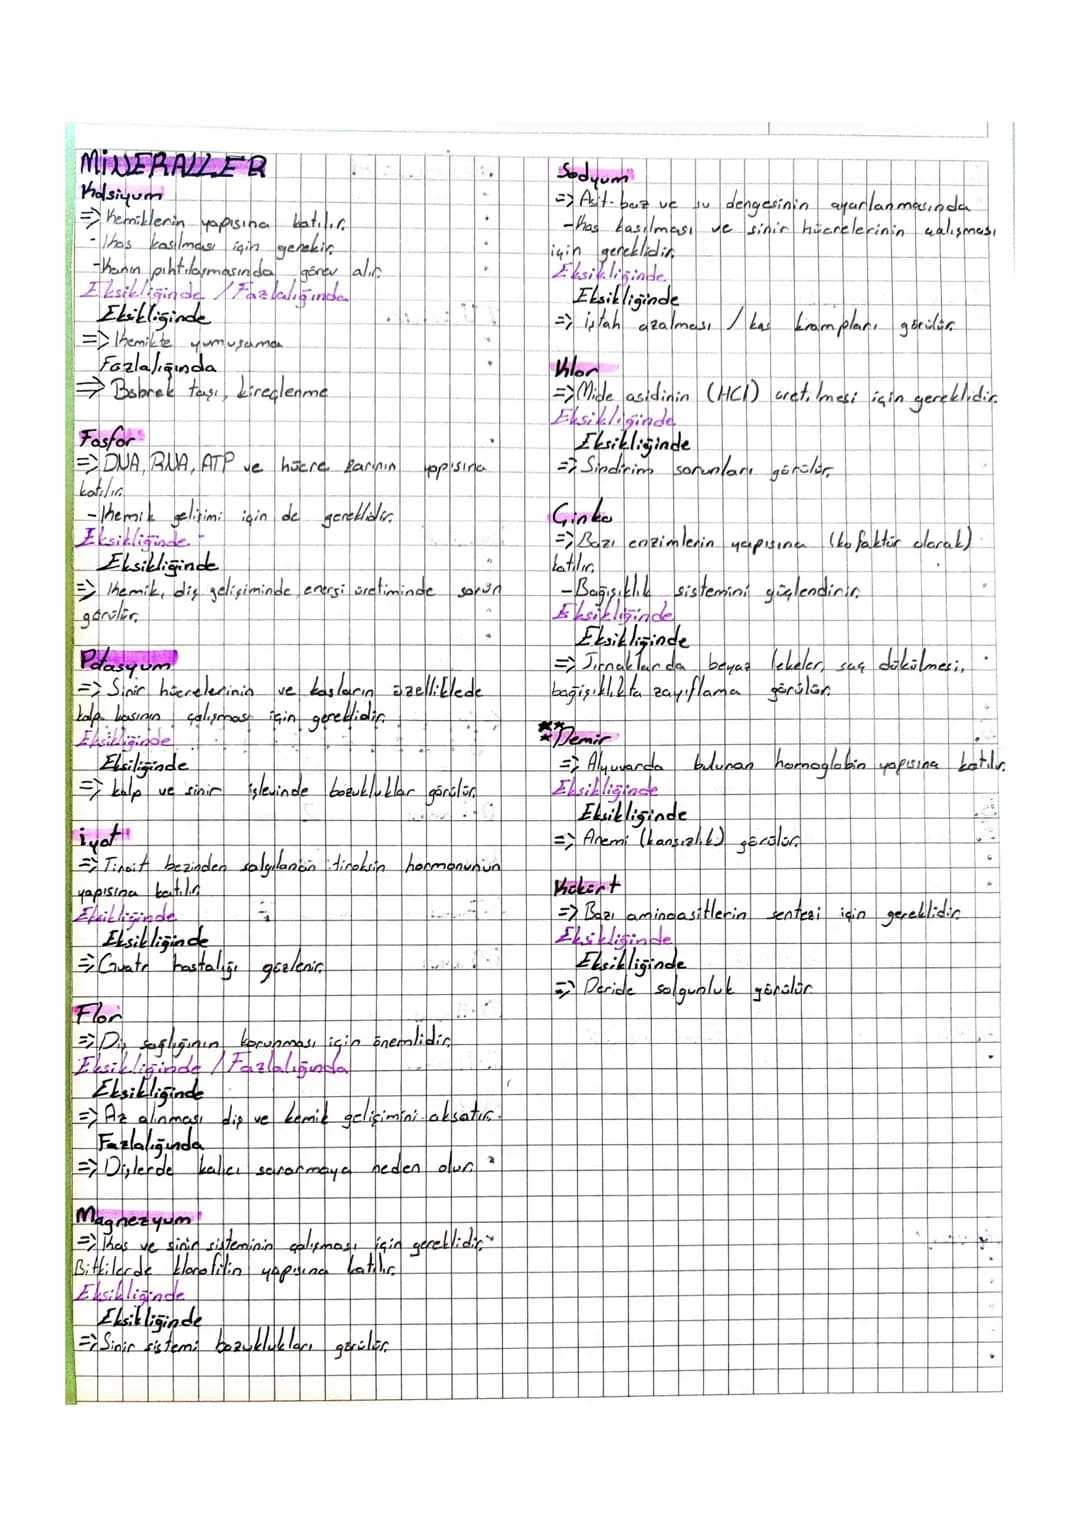 MİNERALLER
Kalsiyum
=> Kemiklerin yapısına katılır.
- Kas kasılması için gerekir.
- Kanın pıhtılaşmasında görev alır.
Eksikliğinde / Fazlalığında
Eksikliğinde
=> Kemikte yumuşama
Fazlalığında
=> Böbrek taşı, kireçlenme
Fosfor
=> DNA, RNA, ATP ve hücre zarının yapısına
katılır.
- Kemik gelişimi için de gereklidir.
Eksikliğinde
Eksikliğinde
=> Kemik, diş gelişiminde, enerji üretiminde sorun
görülür.
Potasyum
=> Sinir hücrelerinin ve kasların özelliklede
kalp kasının çalışması için gereklidir.
Eksikliğinde
Eksiliğinde
=> kalp ve sinir işlevinde bozukluklar görülür.
iyot
=> Tiroit bezinden salgılanan tiroksin hormonunun
yapısına katılır.
Eksikliğinde
Eksikliğinde
=> Guatr hastalığı gözlenir.
Flor
=> Diş sağlığının korunması için önemlidir.
Eksikliğinde / Fazlalığında
Eksikliğinde
=> Az alınması diş ve kemik gelişimini aksatır.
Fazlalığında
=> Dişlerde kalıcı sararmaya neden olur.
Magnezyum
=> Kas ve sinir sisteminin çalışması için gereklidir.
Bitkilerde klorofilin yapısına katılır.
Eksikliğinde
Eksikliğinde
=> Sinir sistemi bozuklukları görülür.
Sodyum
=> Asit-baz ve su dengesinin ayarlanmasında
- Kas kasılması ve sinir hücrelerinin çalışması
için gereklidir.
Eksikliğinde
Eksikliğinde
=> iştah azalması / kas krampları görülür.
Klor
=> Mide asidinin (HCl) üretilmesi için gereklidir.
Eksikliğinde
Eksikliğinde
=> Sindirim sorunları görülür.
Çinko
=> Bazı enzimlerin yapısına (kofaktör olarak)
katılır.
- Bağışıklık sistemini güçlendirir.
Eksikliğinde
Eksikliğinde
=> Tırnaklarda beyaz lekeler, saç dökülmesi,
bağışıklıkta zayıflama görülür.
*** Demir
=> Alyuvarda bulunan homoglobin yapısına katılır.
Eksikliğinde
Eksikliğinde
=> Anemi (kansızlık) görülür.
Kükürt
=> Bazı aminoasitlerin sentezi için gereklidir.
Eksikliğinde
Eksikliğinde
=> Deride solgunluk görülür